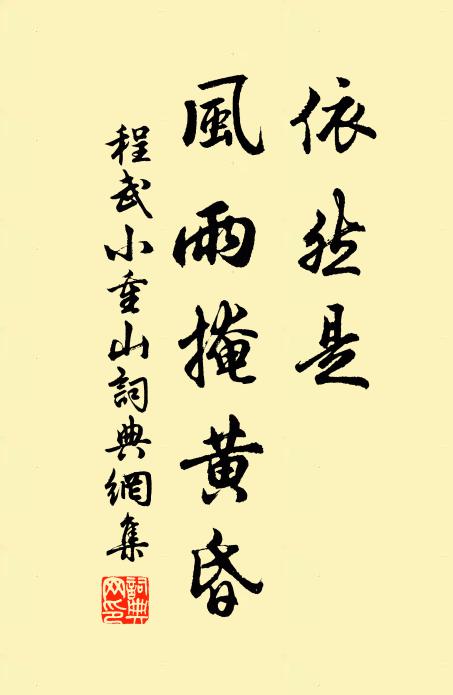 依然是
風雨掩黄昏
程武小重山詞典網集
詞典網印